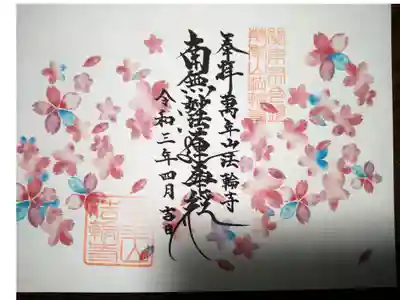 奉拝 萬年山法輪寺
南無妙法蓮華経
令和三年四月吉日